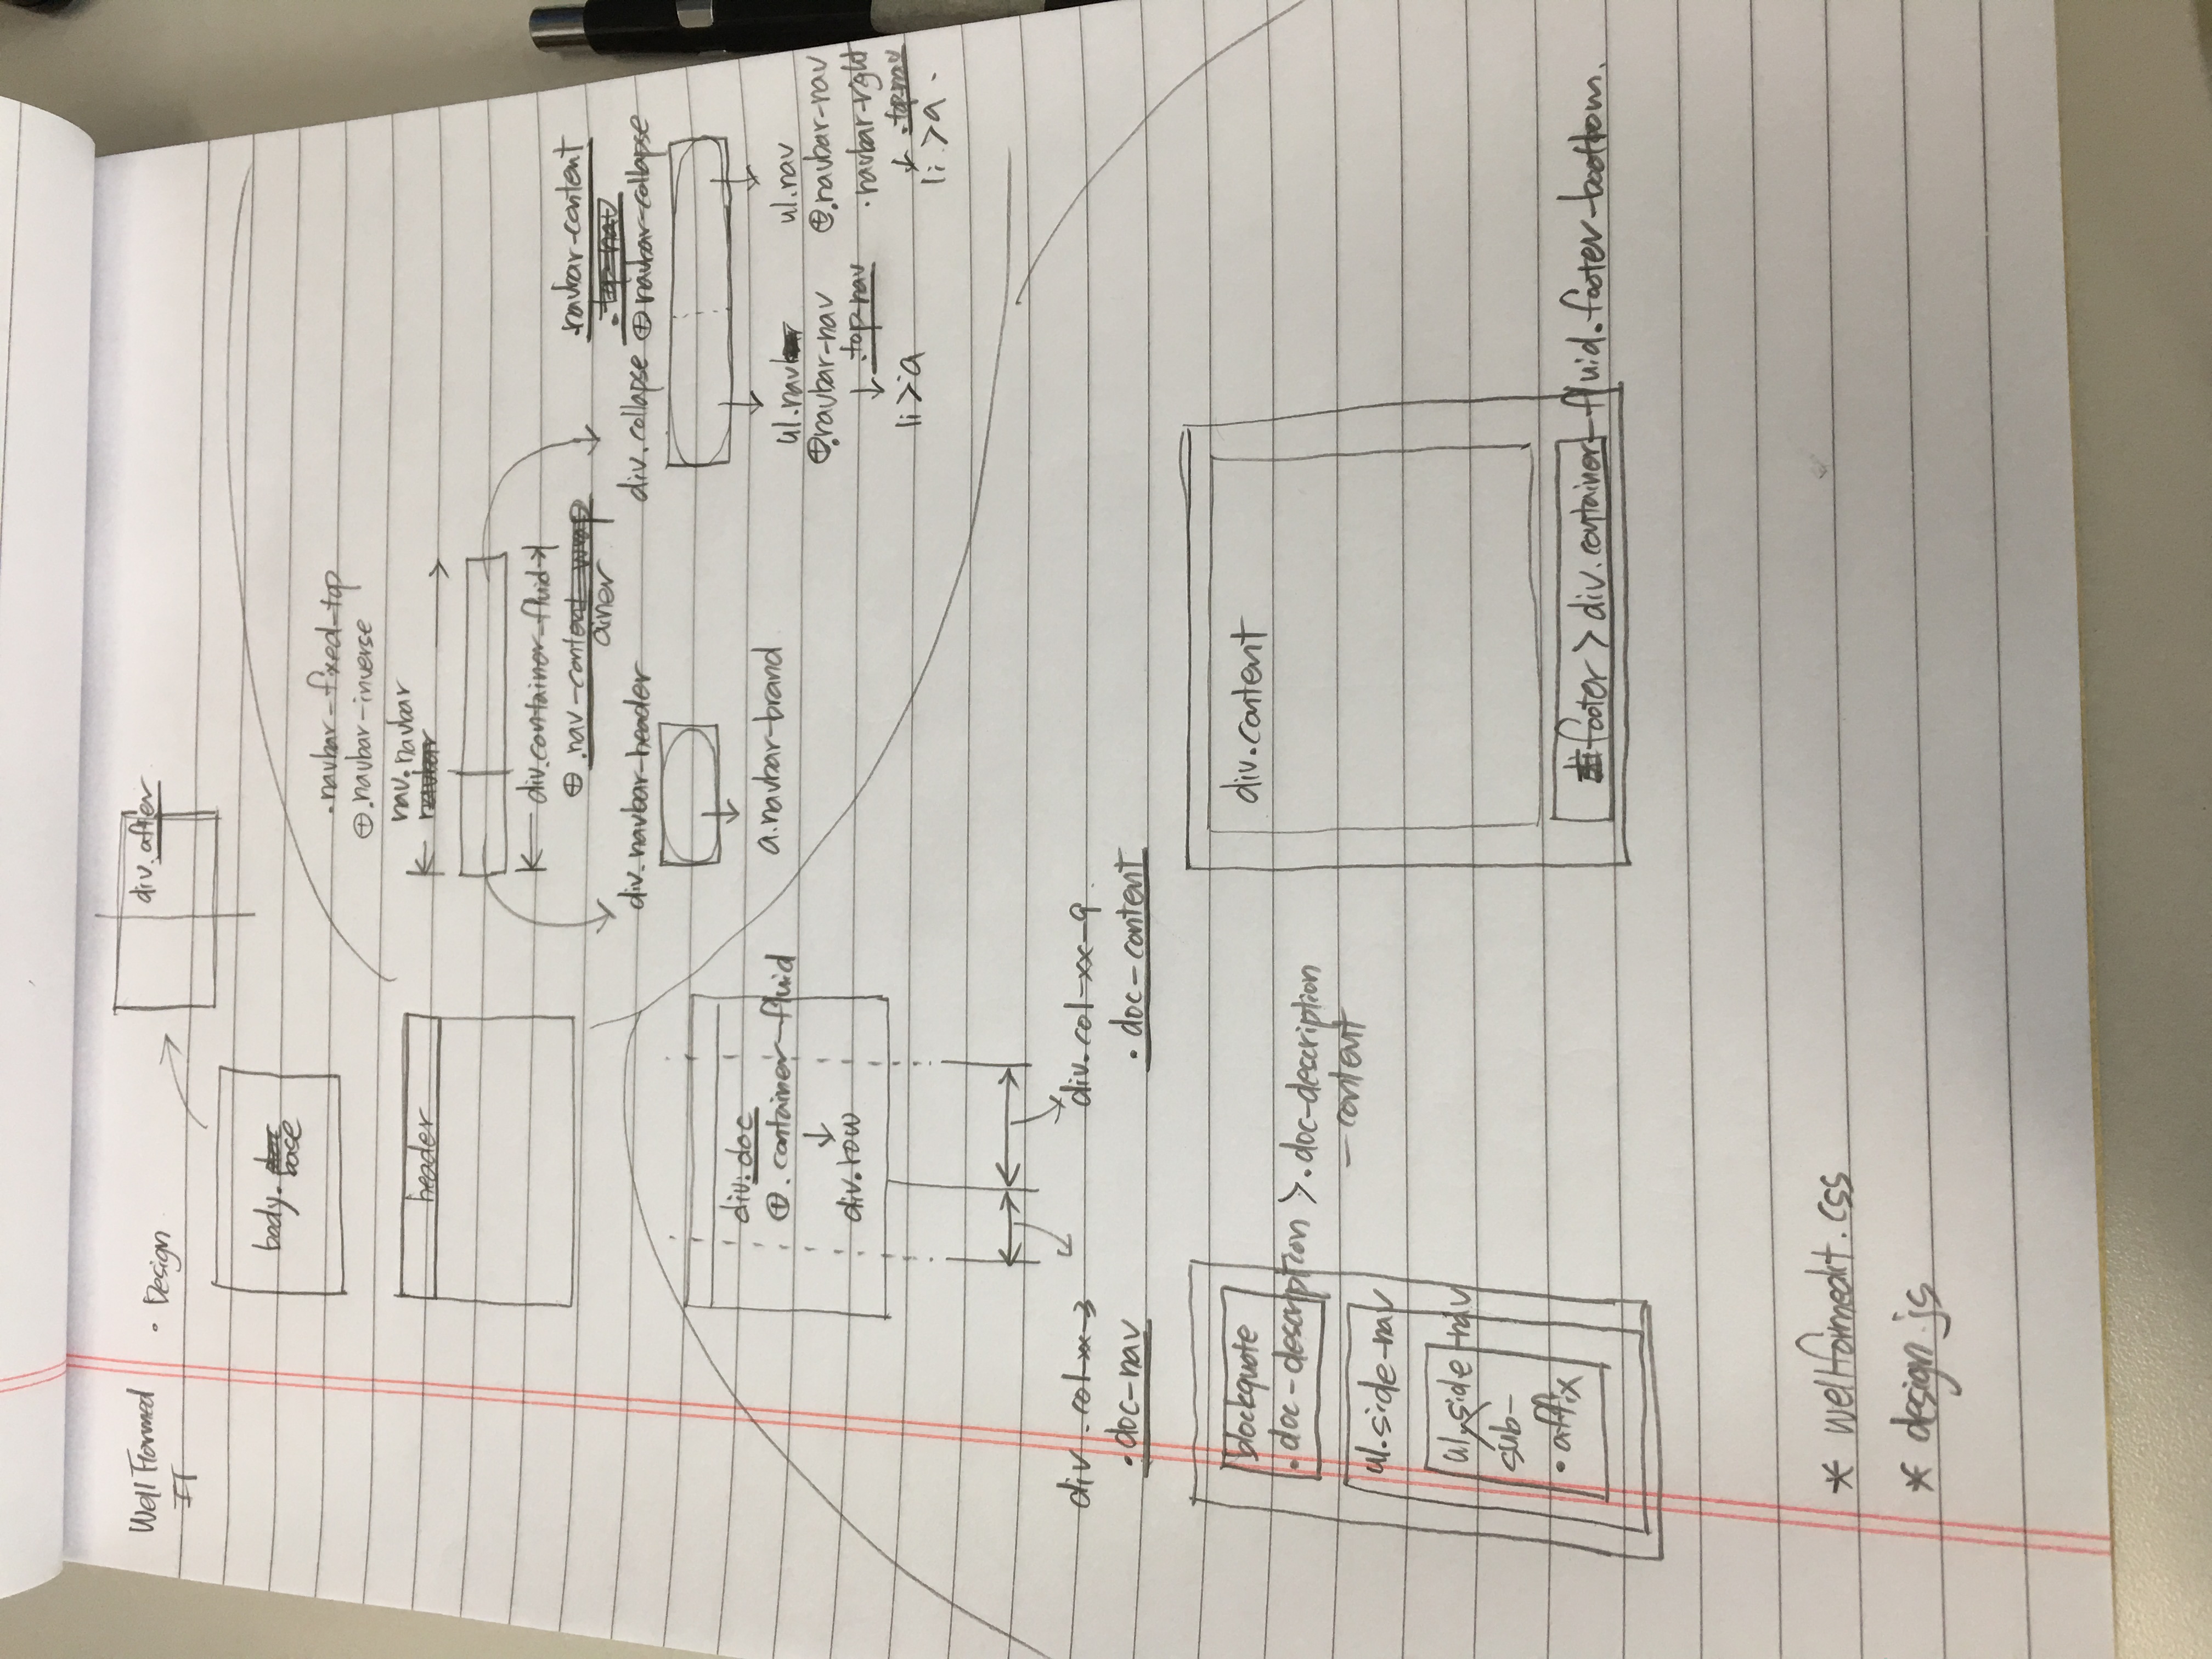 Well Formed
IT
· Design
div.after
body.
base
.navbar-fixed-top
⊕.navbar-inverse
nav.navbar
navbar
header
div.container-fluid
⊕ .nav-content wrap
ainer
div.navbar-header
a.navbar-brand
.navbar-content
.top-nav
div.collapse ⊕ navbar-collapse
ul.nav
⊕.navbar-nav
.top-nav
li > a
ul.nav
⊕.navbar-nav
.navbar-right
.top-nav
li > a
div.doc
⊕ .container-fluid
div.row
div .col-xx-3
.doc-nav
div.col-xx-9
.doc-content
blockquote
.doc-description > .doc-description
-content
ul.side-nav
ul.side-nav
sub-
.affix
div.content
footer > div.container-fluid.footer-bottom.
* wellformedit.css
* design.js